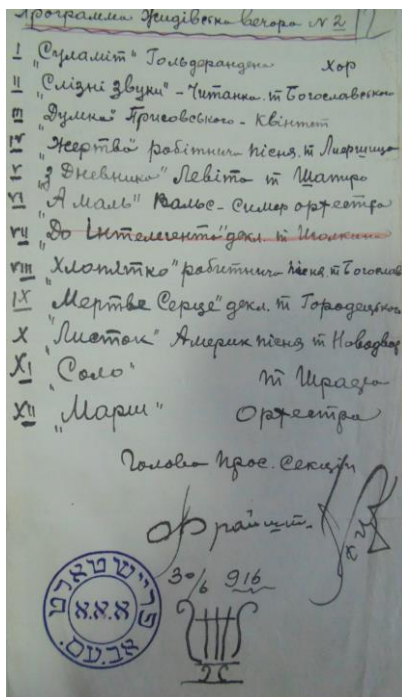 Программа Жидівскаго вечора № 2
I „Суламіт" Гольдфадена хор
II „Слізні звуки" – Читанка. т Богославского
III „Думка" Присовського – Квінтет
IV „Жертва" робітнича пісня. т
V „З Дневника" Левіта т Шапиро
VI „Амаль" Вальс – Симф оркестра
VII „До Інтелегента" декл. т
VIII „Хлопятко" робітнича пісня т Богослав
IX „Мертве Серце" декл. т Городецького
X „Листок" Америк пісня т Новодвор
XI „Соло" т
XII „Марш" Оркестра
Голова Прос. Секции
30/6 916
פריישטארט
א.א.א
אב.עם.